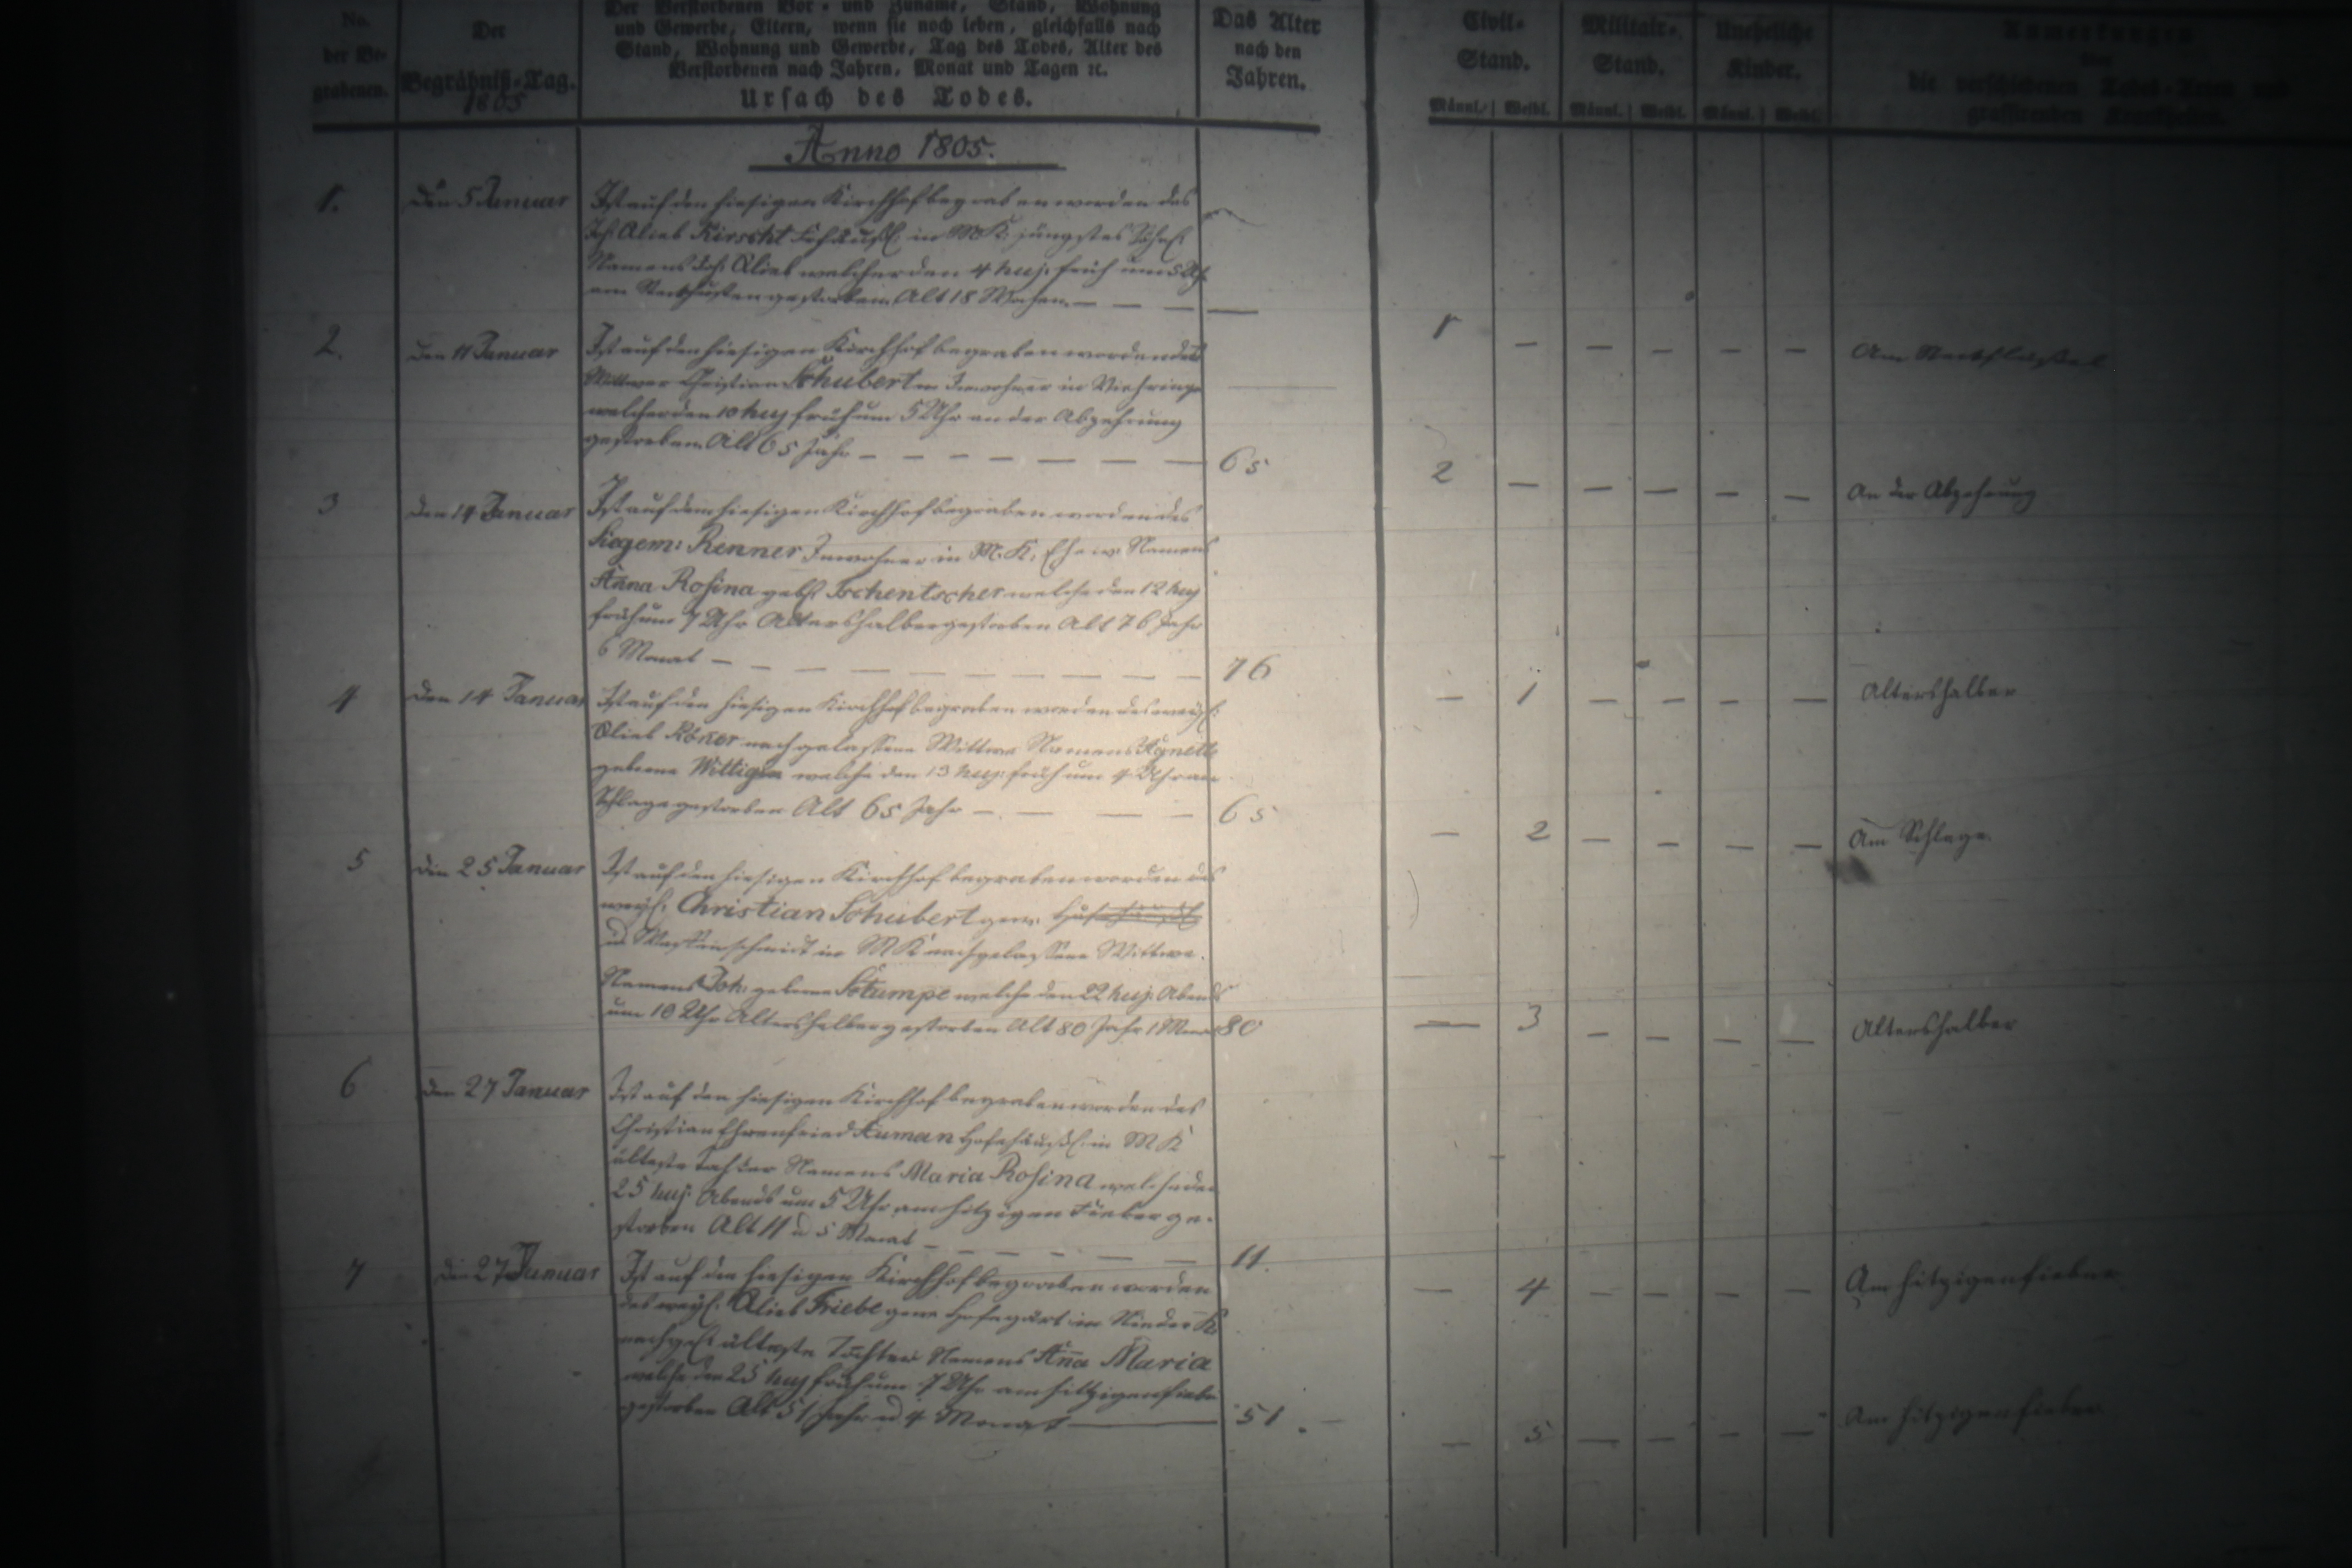 No.
der Be-
grabenen.
Der
Begräbniß-Tag.
1805
Der Verstorbenen Vor- und Zuname, Stand, Wohnung
und Gewerbe, Eltern, wenn sie noch leben, gleichfalls nach
Stand, Wohnung und Gewerbe, Tag des Todes, Alter des
Verstorbenen nach Jahren, Monat und Tagen ꝛc.
Ursach des Todes.
Das Alter
nach den
Jahren.
Civil-
Stand.
Männl. Weibl.
Militair-
Stand.
Männl. Weibl.
Uneheliche
Kinder.
Männl. Weibl.
Anmerkungen
über
die verschiedenen Todes-Arten und
grassirenden Krankheiten.
Anno 1805.
1. Den 5 Januar Ist auf den hiesigen Kirchhof begraben worden des
Kirschkt in MK. jüngstes Söhnl
Namens Joh. Glieb welcher den 4 huj. früh um 5 Uhr
am Steckhusten gestorben Alt 18 Wochen — — —
1 — — — — — Am
2. Den 11 Januar Ist auf den hiesigen Kirchhof begraben worden der
Wittwer Christian Schubert Inwohner in
welcher den 10 huj früh um 5 Uhr an der Abzehrung
gestorben Alt 65 Jahr — — — — — — — 65
2 — — — — — An der Abzehrung
3 den 14 Januar Ist auf dem hiesigen Kirchhof begraben worden des
Siegem: Renner Inwohner in M. K. Ehew. Namens
Anna Rosina gebl Tschentscher welche den 12 huj
früh um 7 Uhr Altershalber gestorben Alt 76 Jahr
6 Monat — — — — — — — — 76
— 1 — — — — Altershalber
4 den 14 Januar Ist auf den hiesigen Kirchhof begraben worden des weyl:
Glieb Röker nachgelassene Wittwe Namens
geborne Wittigin welche den 13 huj: früh um 4 Uhr am
Schlage gestorben Alt 65 Jahr — — — — 65
— 2 — — — — Am Schlage
5 den 25 Januar Ist auf den hiesigen Kirchhof begraben worden des
weyl. Christian Schubert gew.
in MK nachgelassene Wittwe.
Namens Joh: geborne Stumpe welche den 22 huj. Abends
um 10 Uhr Altershalber gestorben Alt 80 Jahr 1 Monat 80
— 3 — — — — Altershalber
6 den 27 Januar Ist auf den hiesigen Kirchhof begraben worden des
Christian Ehrenfried Auman Hofehäusl. in MK
älteste Tochter Namens Maria Rosina welche den
25 huj. Abends um 5 Uhr am hitzigen Fieber ge-
storben Alt 11 u 5 Monat — — — — — — 11.
— 4 — — — — Am hitzigen fieber
7 den 27 Januar Ist auf den hiesigen Kirchhof begraben worden
des weyl. Glieb Friebe gew. Hofegärt in Nieder K.
nachgel älteste Tochter Namens Aña Maria
welche den 25 huj früh um 7 Uhr am hitzigen fieber
gestorben Alt 51 Jahr u 4 Monat — 51.
— 5 — — — — Am hitzigen fieber